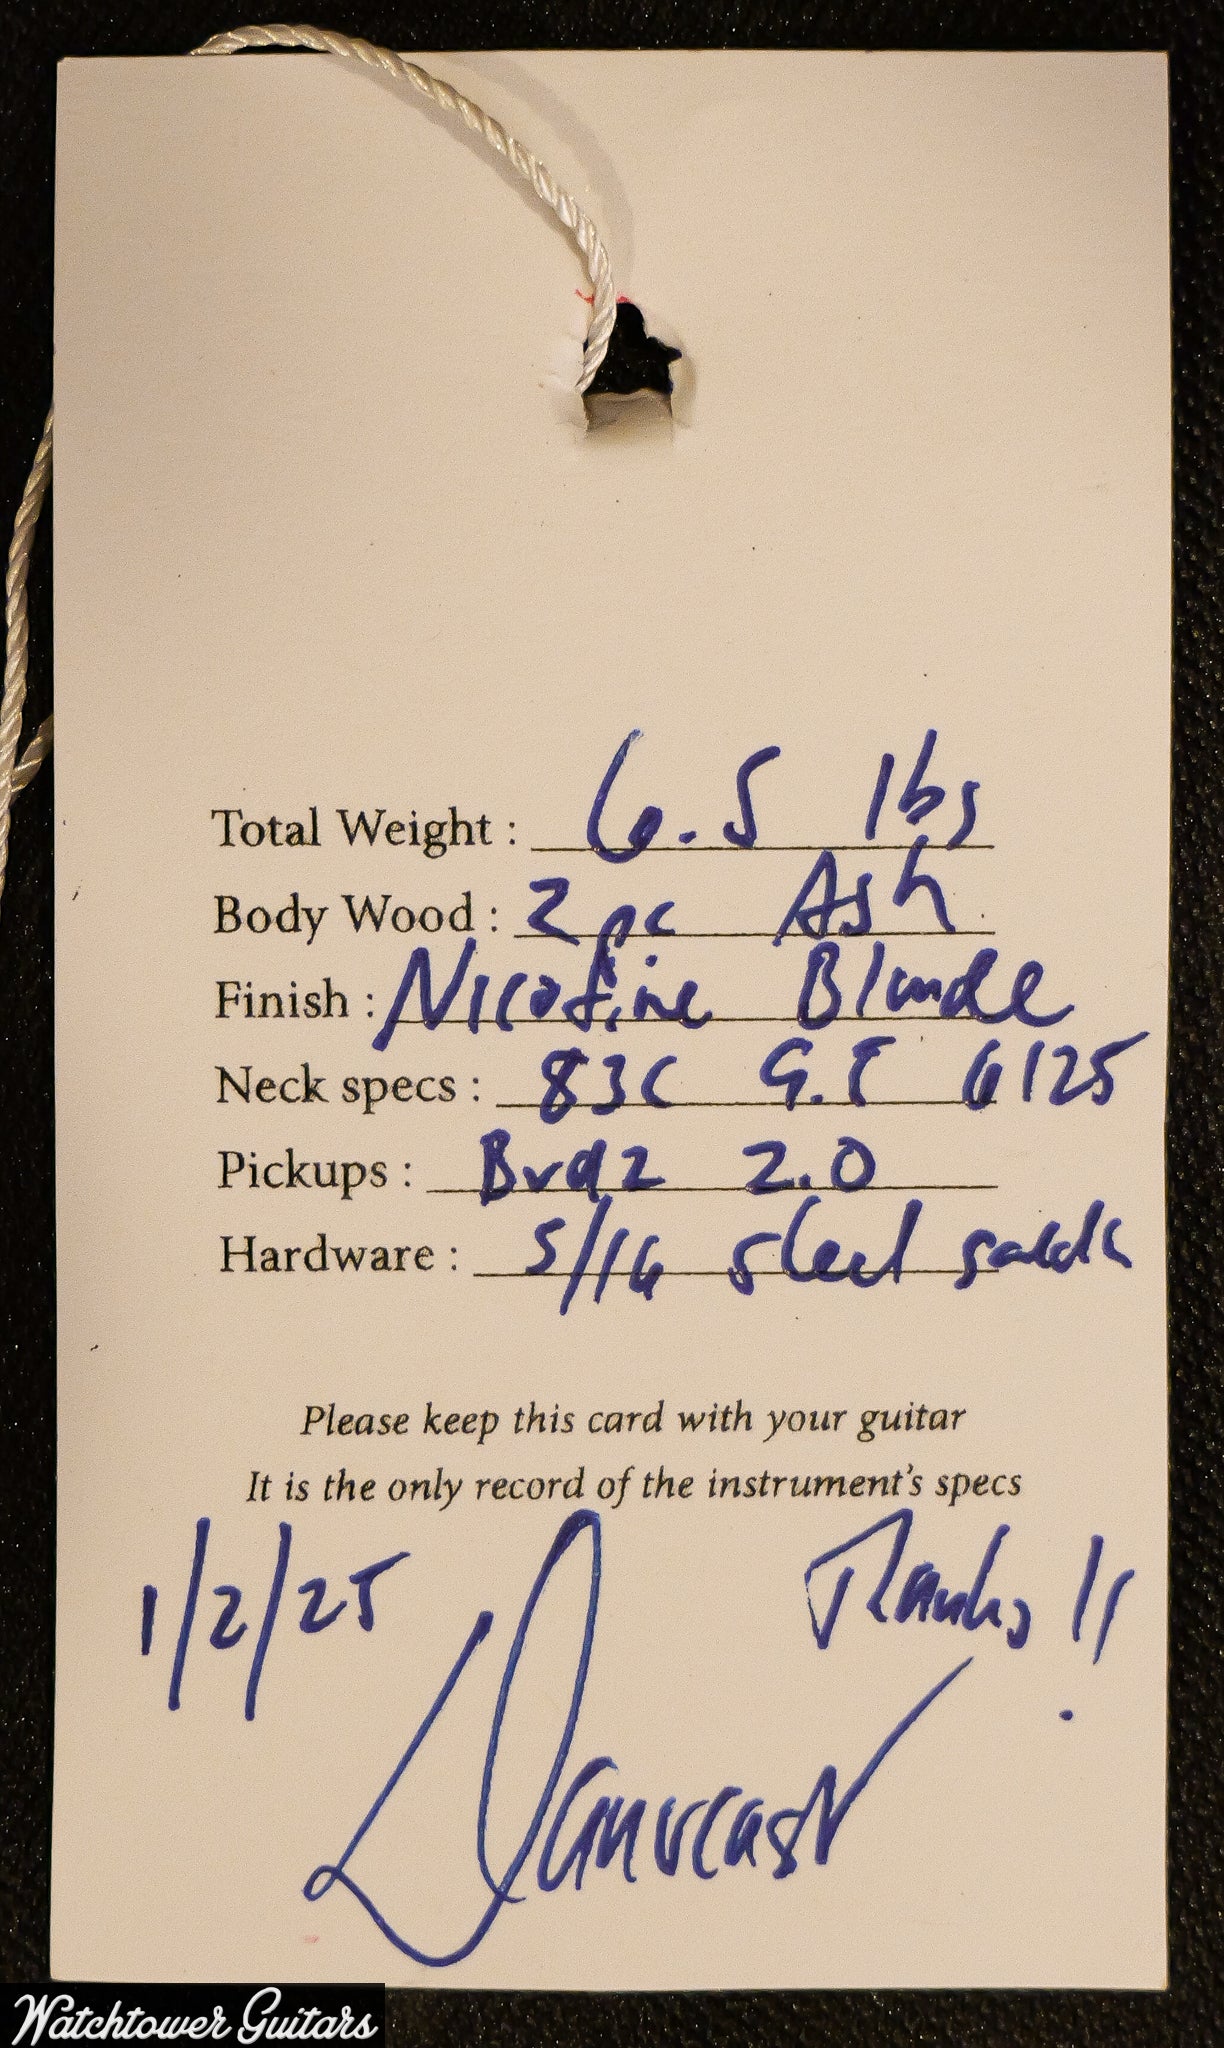 Total Weight : 6.5 lbs
Body Wood : 2 pc Ash
Finish : Nicotine Blonde
Neck specs : 83C 9.5 6125
Pickups : Brdz 2.0
Hardware : 5/16 steel saddle
Please keep this card with your guitar
It is the only record of the instrument's specs
1/2/25 Thanks !!
Danocaster
Watchtower Guitars